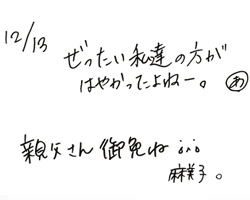 12/13
ぜったい私達の方が
はやかったよねー。 あ
親父さん御免ね ;。;
麻美子。